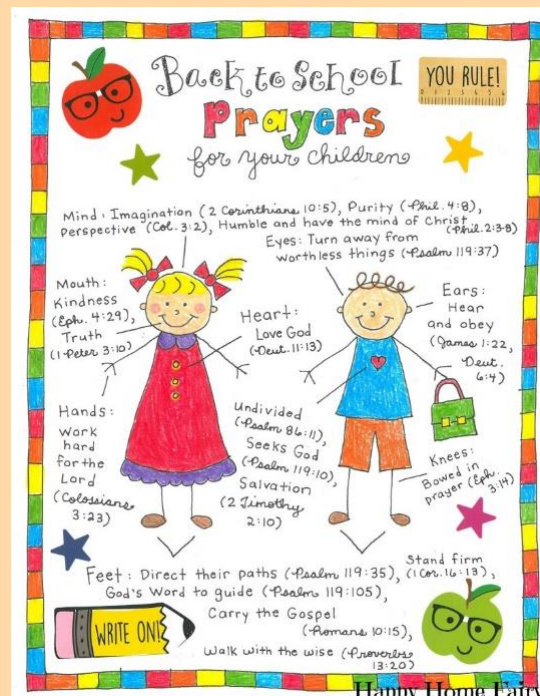 Back to School
YOU RULE!
Prayers
for your children
Mind: Imagination (2 Corinthians 10:5), Purity (Phil. 4:8),
perspective (Col. 3:2), Humble and have the mind of Christ
(Phil. 2:3-8)
Eyes: Turn away from
worthless things (Psalm 119:37)
Mouth:
Kindness
(Eph. 4:29),
Truth
(1 Peter 3:10)
Heart:
Love God
(Deut. 11:13)
Ears:
Hear
and obey
(James 1:22,
Deut.
6:4)
Hands:
Work
hard
for the
Lord
(Colossians
3:23)
Undivided
(Psalm 86:11),
Seeks God
(Psalm 119:10)
Salvation
(2 Timothy
2:10)
Knees:
Bowed in
prayer (Eph.
3:14)
Feet: Direct their paths (Psalm 119:35),
Stand firm
(1 Cor. 16:13),
God's Word to guide (Psalm 119:105),
Carry the Gospel
(Romans 10:15),
Walk with the wise (Proverbs
13:20)
WRITE ON!
Happy Home Fairy